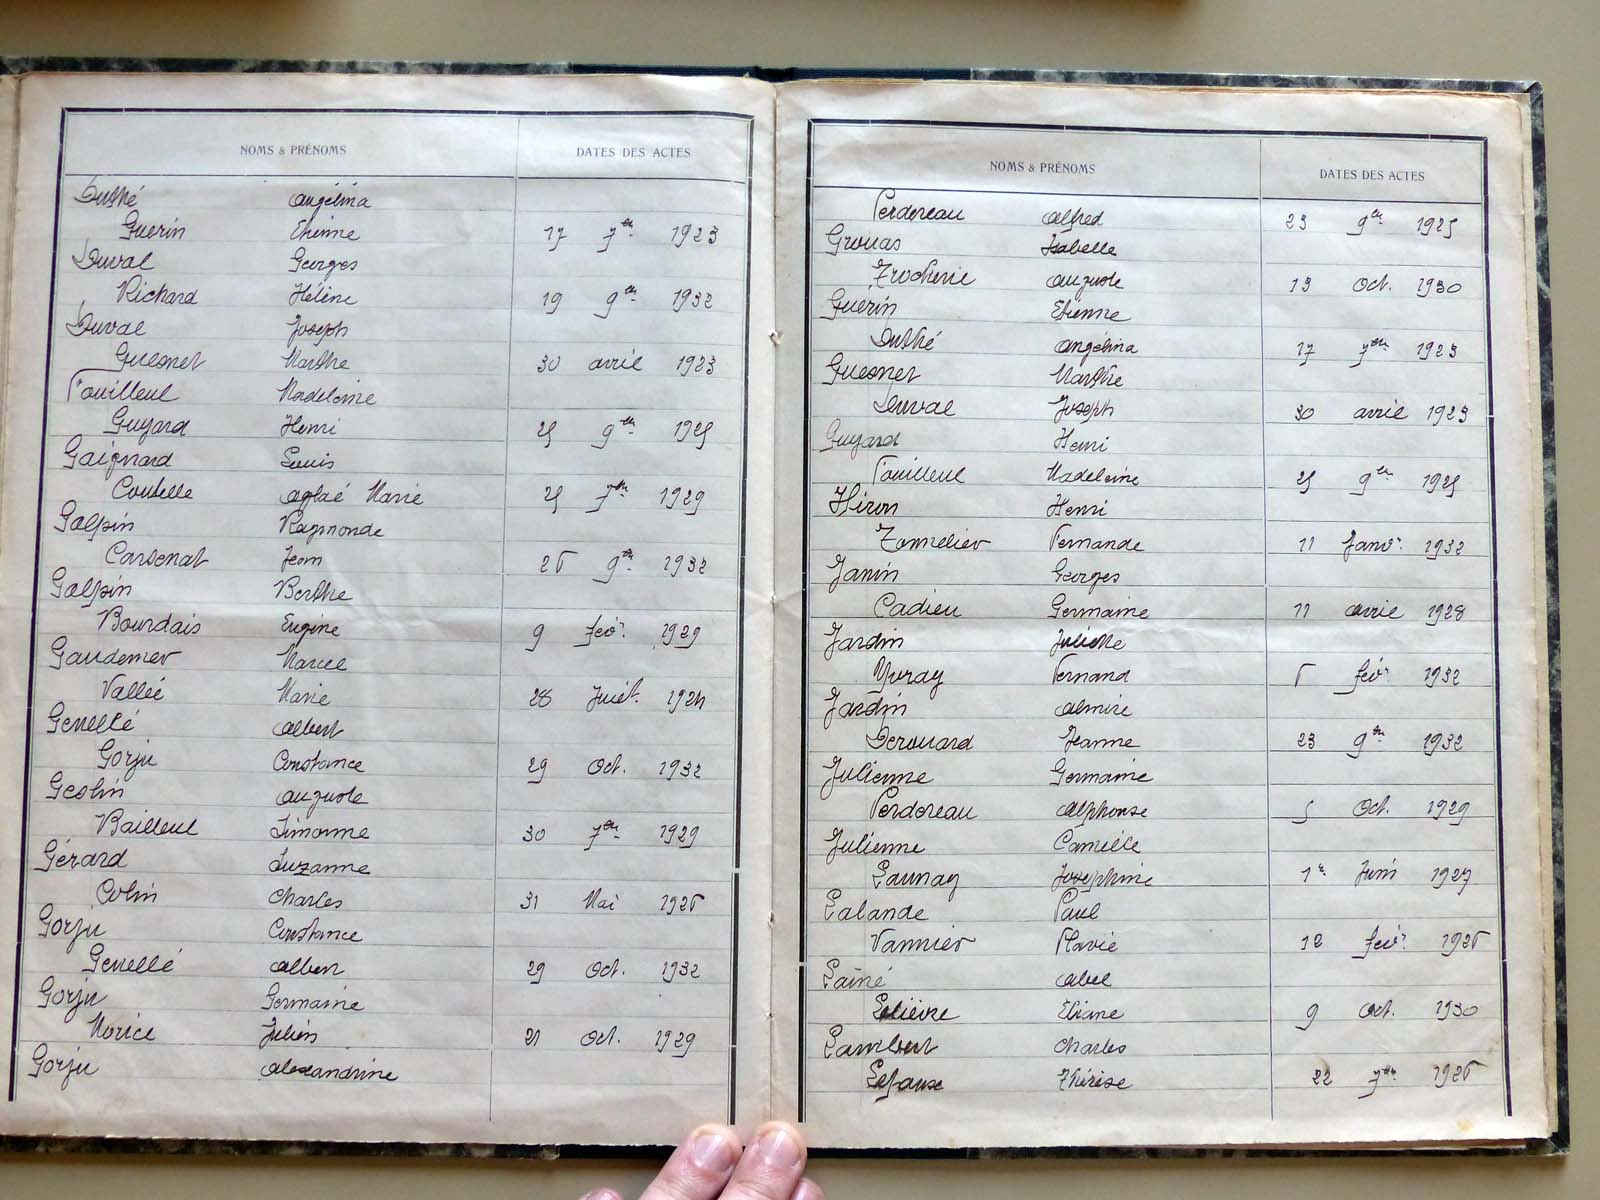 NOMS & PRÉNOMS DATES DES ACTES
Duthé Angélina
Guérin Etienne 17 7bre 1923
Duval Georges
Richard Hélène 19 9bre 1932
Duval Joseph
Guesnet Marthe 30 avril 1923
Fouilleul Madeleine
Guyard Henri 25 9bre 1925
Gaignard Louis
Coubelle Aglaé Marie 25 7bre 1929
Galpin Raymonde
Carsenat Jean 26 9bre 1932
Galpin Berthe
Bourdais Eugène 9 fév. 1929
Gaudemer Marcel
Vallée Marie 28 Juil. 1924
Genellé Albert
Gorju Constance 29 Oct. 1932
Geslin Auguste
Bailleul Simonne 30 7bre 1929
Gérard Suzanne
Colin Charles 31 Mai 1926
Gorju Constance
Genellé Albert 29 Oct. 1932
Gorju Germaine
Morice Julien 21 Oct. 1929
Gorju Alexandrine
NOMS & PRÉNOMS DATES DES ACTES
Perdereau Alfred 23 9bre 1925
Grouas Isabelle
Trocherie Auguste 13 Oct. 1930
Guérin Etienne
Duthé Angélina 17 7bre 1923
Guesnet Marthe
Duval Joseph 30 avril 1923
Guyard Henri
Fouilleul Madeleine 25 9bre 1925
Hiron Henri
Tonnelier Fernande 11 Janv. 1932
Janin Georges
Cadieu Germaine 11 avril 1928
Jardin Juliette
Yvray Fernand 6 fév. 1932
Jardin Almire
Derouard Jeanne 23 9bre 1932
Julienne Germaine
Perdereau Alphonse 5 Oct. 1929
Julienne Camille
Launay Joséphine 1er Juin 1927
Lalande Paul
Vannier Flavie 12 fév. 1926
Lainé Abel
Lelièvre Eliane 9 Oct. 1930
Lambert Charles
Lefaux Thérèse 22 7bre 1926